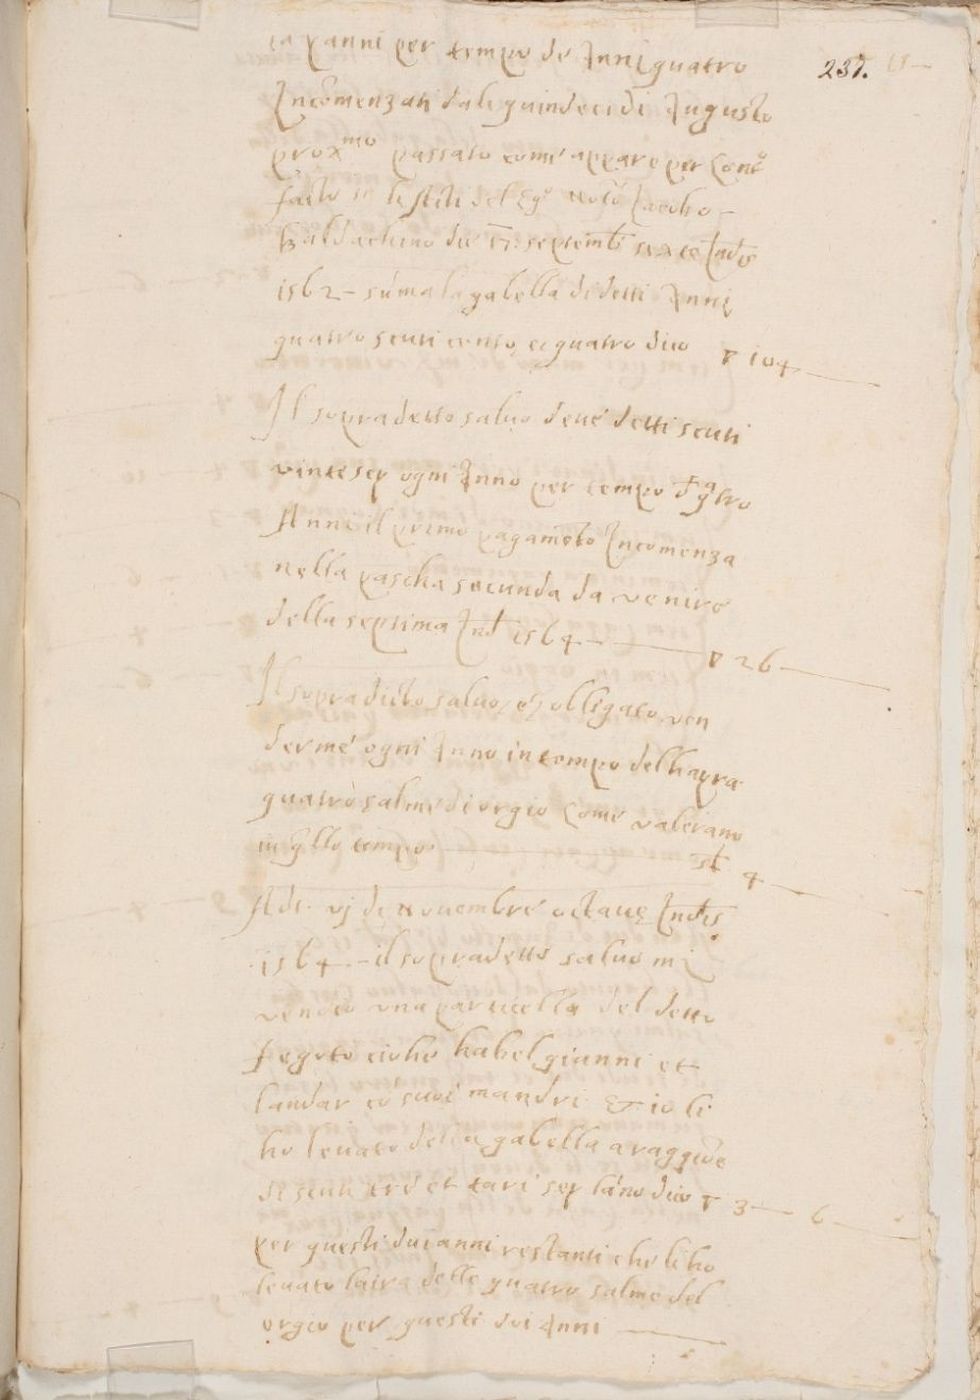 237.
panni per tempo de Anni quatro
Incomenzati dali quindeci di Augusto
prox.mo passato come appare per Cont.o
facto in li Atti del Eg.o Noto Iacobo
Baldachino die 17. septemb. sexte Ind.e
1562 - suma la gabella di detti Anni
quatro scuti cento, et quatro dico 104
Il sopradetto salvo deve detti scuti
vintesey ogni Anno per tempo d qtro
Anni il primo pagameto Incomenza
nella pascha secunda da venire
della septima Ind. 1564 26
Il sopradicto salvo, e, obligato ven
derme ogni Anno in tempo dell apra
quatro salme di orgio come valerano
in qllo tempo 4
Adi. vj de Novembre octave Indis.
1564. - il sopradetto salvo mi
vendeo una particella del detto
fegoto ciohe habel gianni et
landar co suoi mandri & io li
ho levato della gabella a raggioe
di scuti tre et tari sey lano dico 3 6
per questi dui anni restanti che li ho
levato della quatro salme del
orgio per questi doi Anni